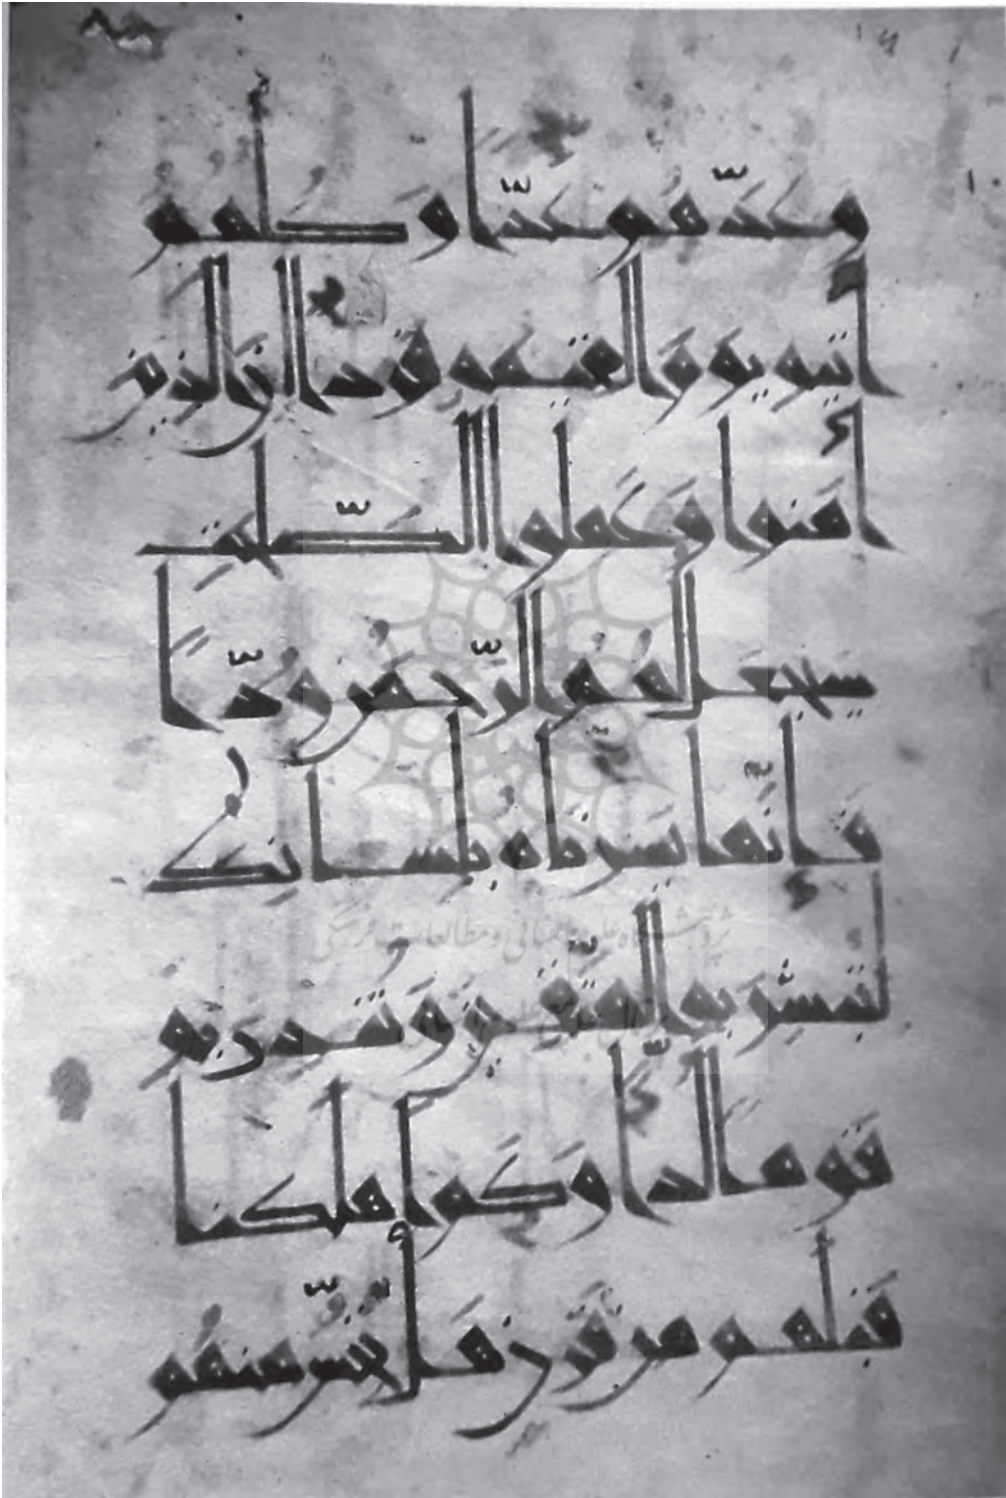 وَعَدَّهُمْ عَدًّا وَكُلُّهُمْ
اٰتِيهِ يَوْمَ الْقِيٰمَةِ فَرْدًا اِنَّ الَّذِينَ
اٰمَنُوا وَعَمِلُوا الصّٰلِحٰتِ
سَيَجْعَلُ لَهُمُ الرَّحْمٰنُ وُدًّا
فَاِنَّمَا يَسَّرْنَاهُ بِلِسَانِكَ
لِتُبَشِّرَ بِهِ الْمُتَّقِينَ وَتُنْذِرَ بِهِ
قَوْمًا لُدًّا وَكَمْ اَهْلَكْنَا
قَبْلَهُمْ مِنْ قَرْنٍ هَلْ تُحِسُّ مِنْهُمْ